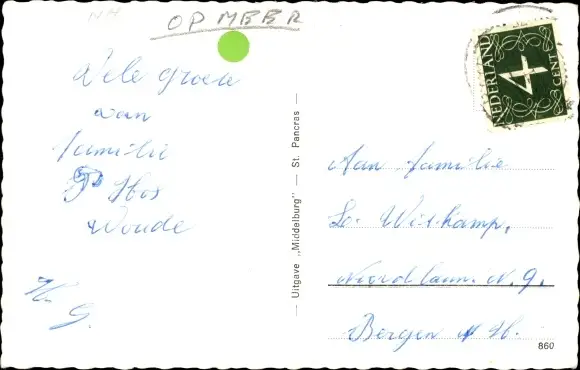 NH
OPMEER
Vele groete
van
familie
P Hos
Woude
NEDERLAND
4
CENT
Uitgave „Middelburg” — St. Pancras
Aan familie
Witkamp,
Noordlaan. N. 9.
Bergen N H.
860